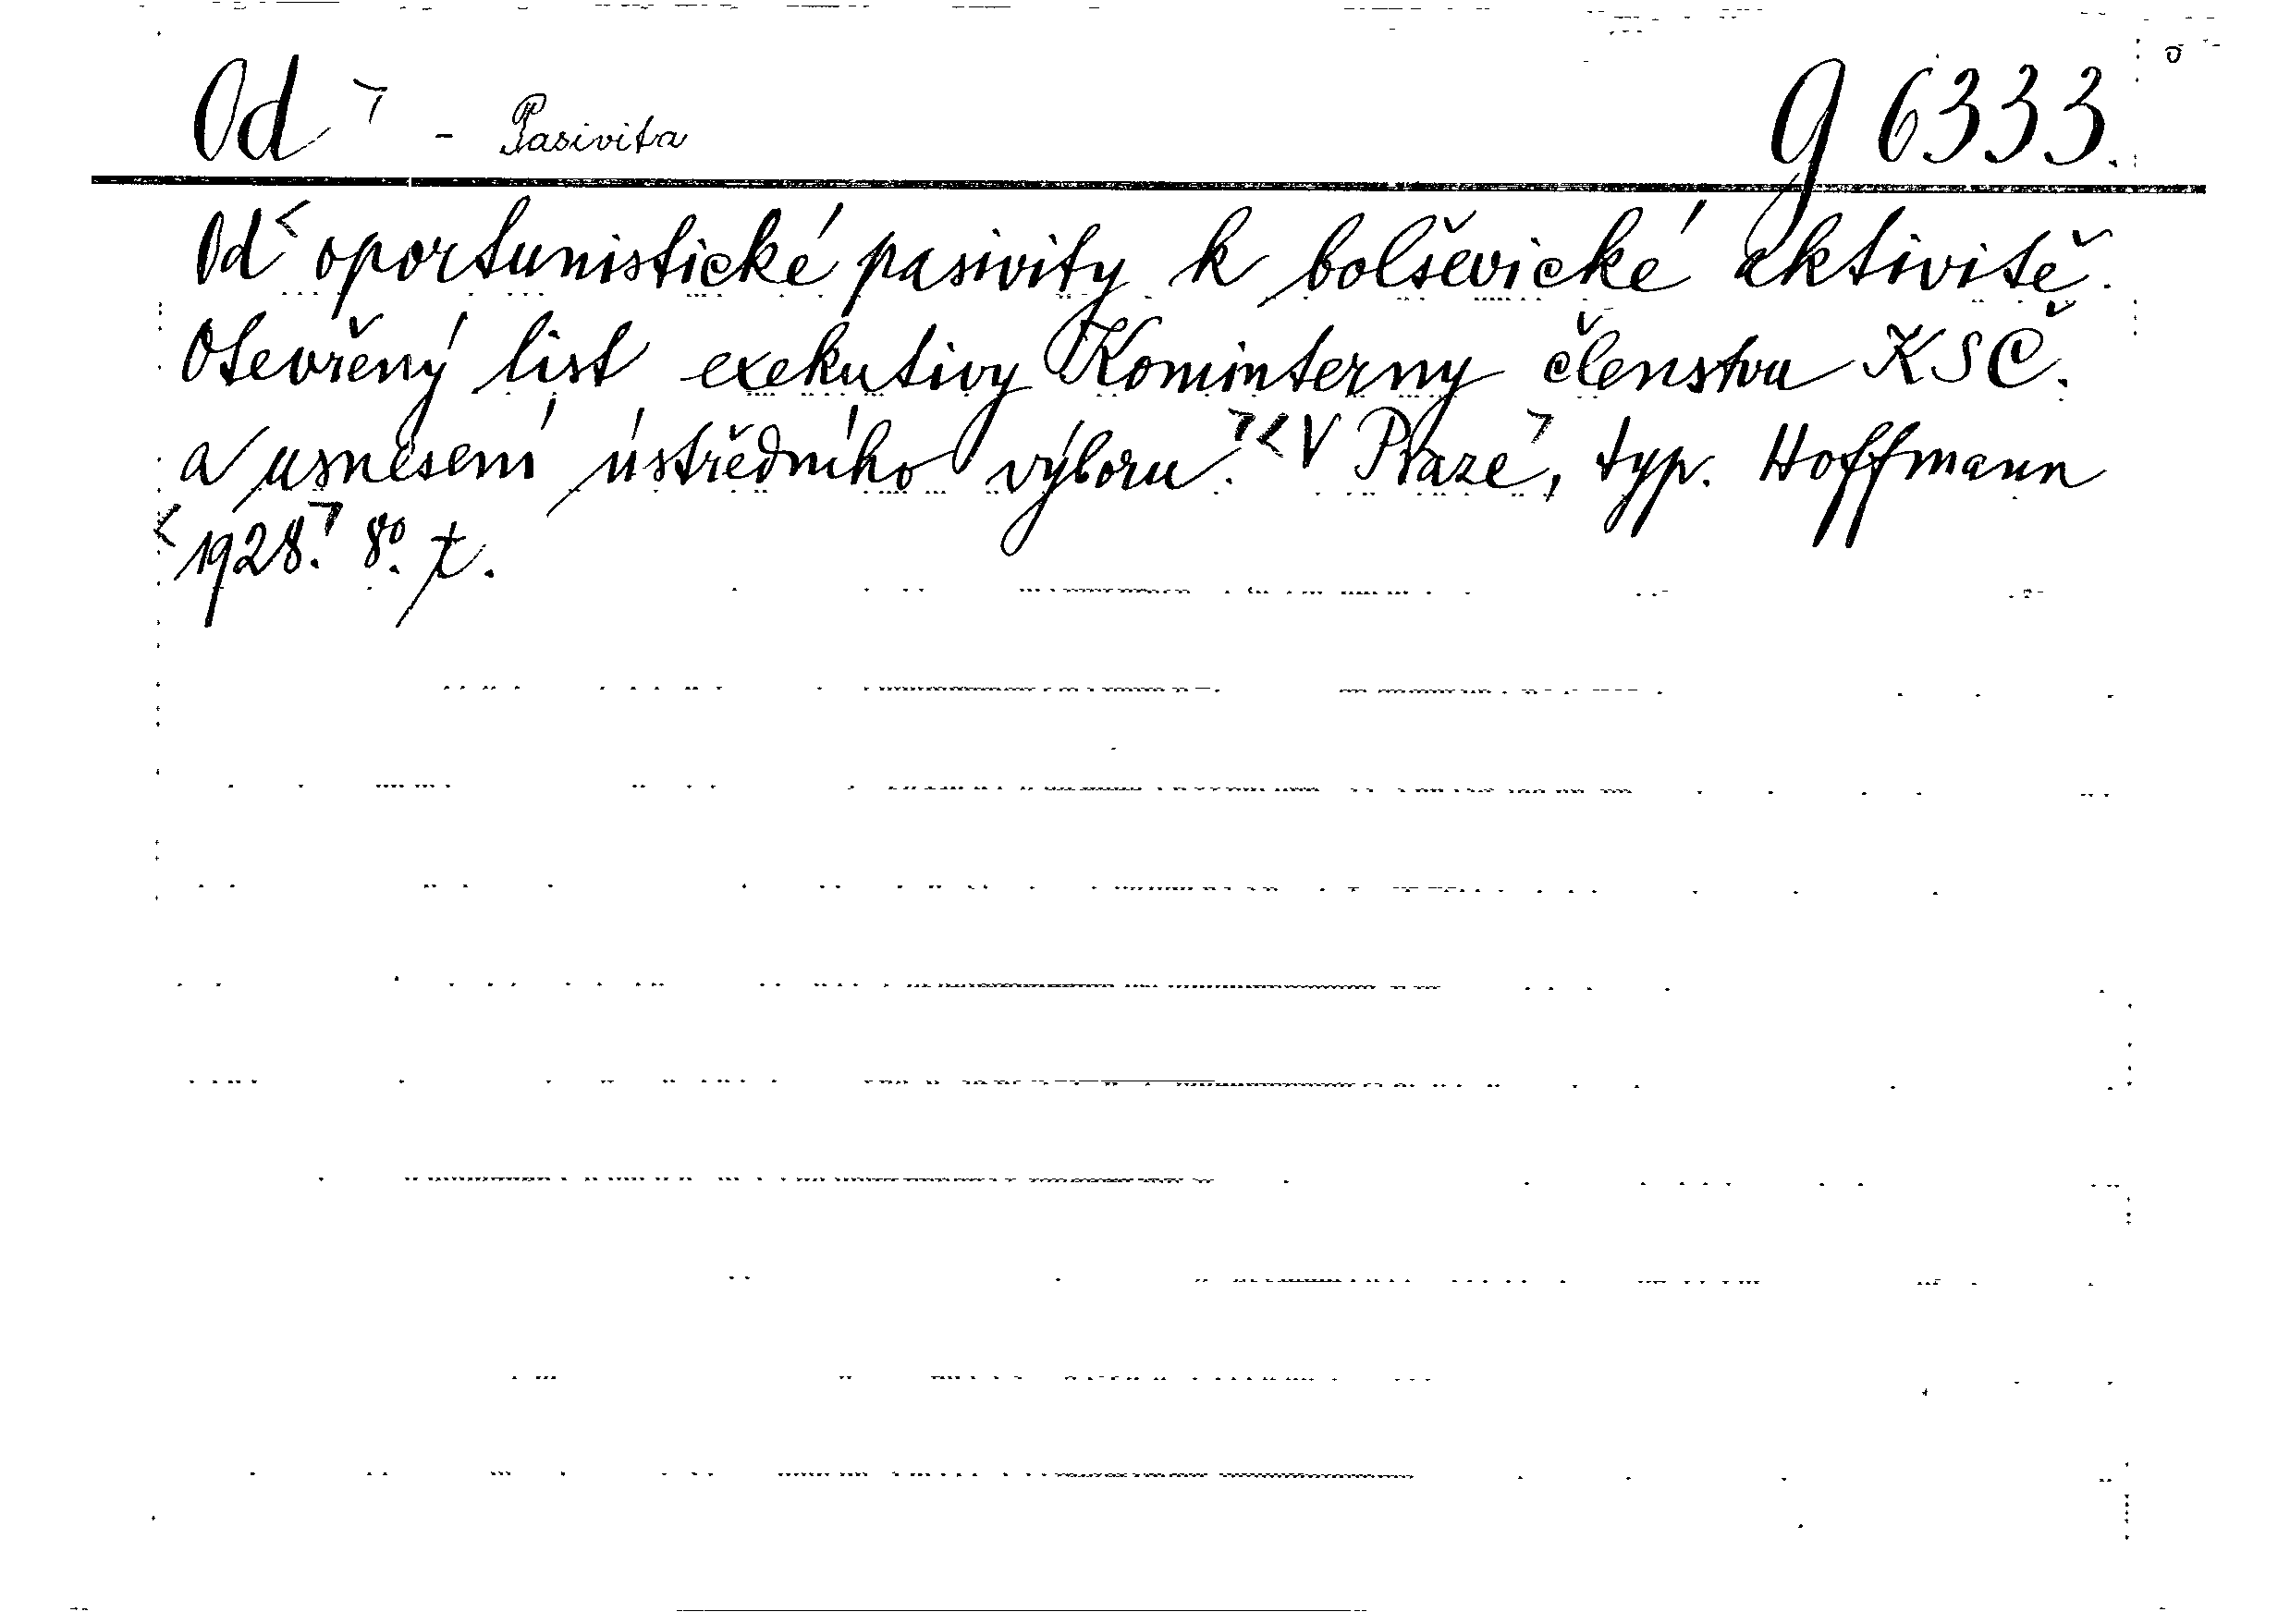 Od - Pasivita g 6333.
Od oportunistické pasivity k bolševické aktivitě.
Otevřený list exekutivy Kominterny členstvu KSČ.
a usnesení ústředního výboru. V Praze, typ. Hoffmann
1928. 8°. t.